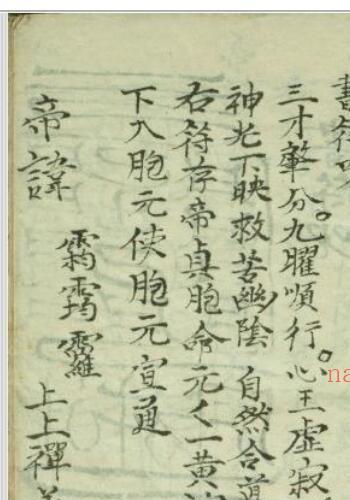 書符
三才肇分。九曜順行。心王虛寂
神光下映救苦幽陰 自然合道
右符存帝真胞命元〻一黄
下入胞元使胞元宣通
帝諱
上上禪
na